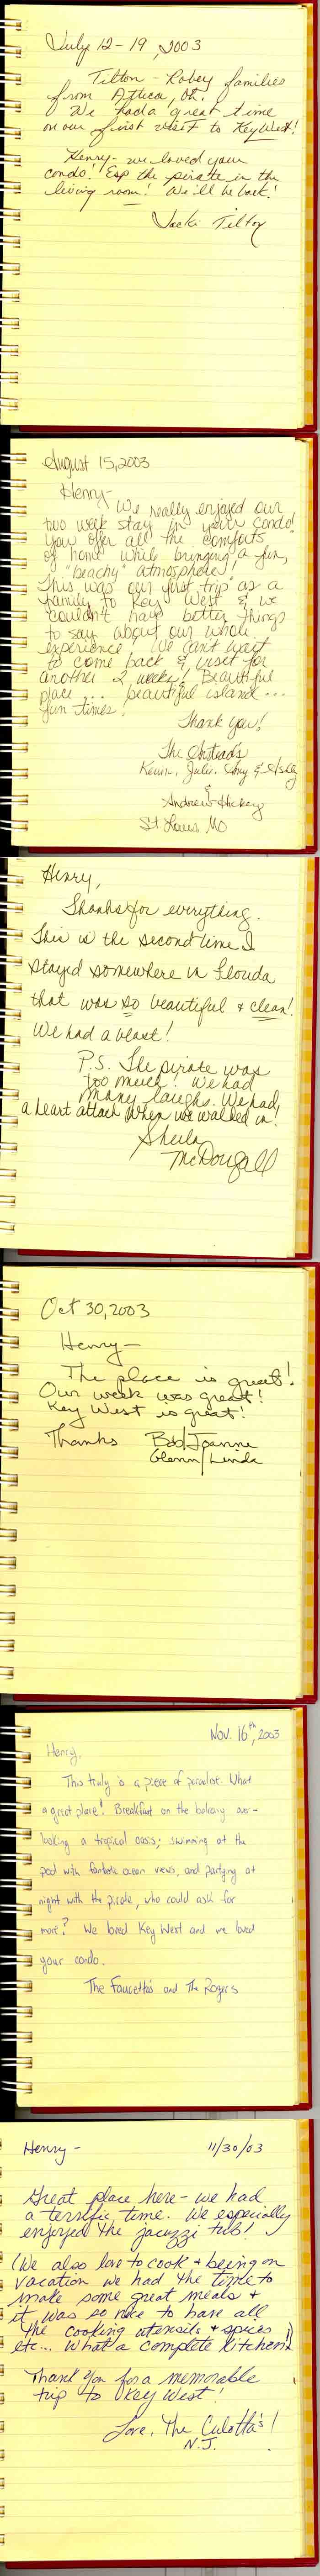 July 12-19, 2003
Tilton - Robey families
from Attica, Oh.
We had a great time
on our first visit to Key West!
Henry - we loved your
condo! Esp the pirate in the
living room! We'll be back!
Jacki Tilton
August 15, 2003
Henry-
We really enjoyed our
two week stay in your condo!
You offer all the comforts
of home while bringing a fun,
"beachy" atmosphere!
This was our first trip as a
family to Key West & we
couldn't have better things
to say about our whole
experience. We can't wait
to come back & visit for
another 2 weeks! Beautiful
place ... beautiful island ...
fun times!
Thank you!
The
Kevin, Julie, Amy &
&
Andrew Hickey
St Louis, MO
Henry,
Thanks for everything.
This is the second time I
stayed somewhere in Florida
that was so beautiful & clean!
We had a blast!
P.S. The pirate was
too much! We had
many laughs. We had
a heart attack when we walked in!
Sheila
McDougall
Oct 30, 2003
Henry-
The place is great!
Our week was great!
Key West is great!
Thanks Bob/Joanne
Glenn/Linda
Nov. 16th, 2003
Henry,
This truly is a piece of paradise. What
a great place! Breakfast on the balcony over-
looking a tropical oasis; swimming at the
pool with fantastic ocean views, and partying at
night with the pirate, who could ask for
more? We loved Key West and we loved
your condo.
The Faucetta's and The Rogers
Henry - 11/30/03
Great place here - we had
a terrific time. We especially
enjoyed the jacuzzi tub!
We also love to cook & being on
vacation we had the time to
make some great meals &
it was so nice to have all
the cooking utensils & spices
etc... What a complete kitchen!!
Thank you for a memorable
trip to Key West!
Love, The Culotta's!
N.J.